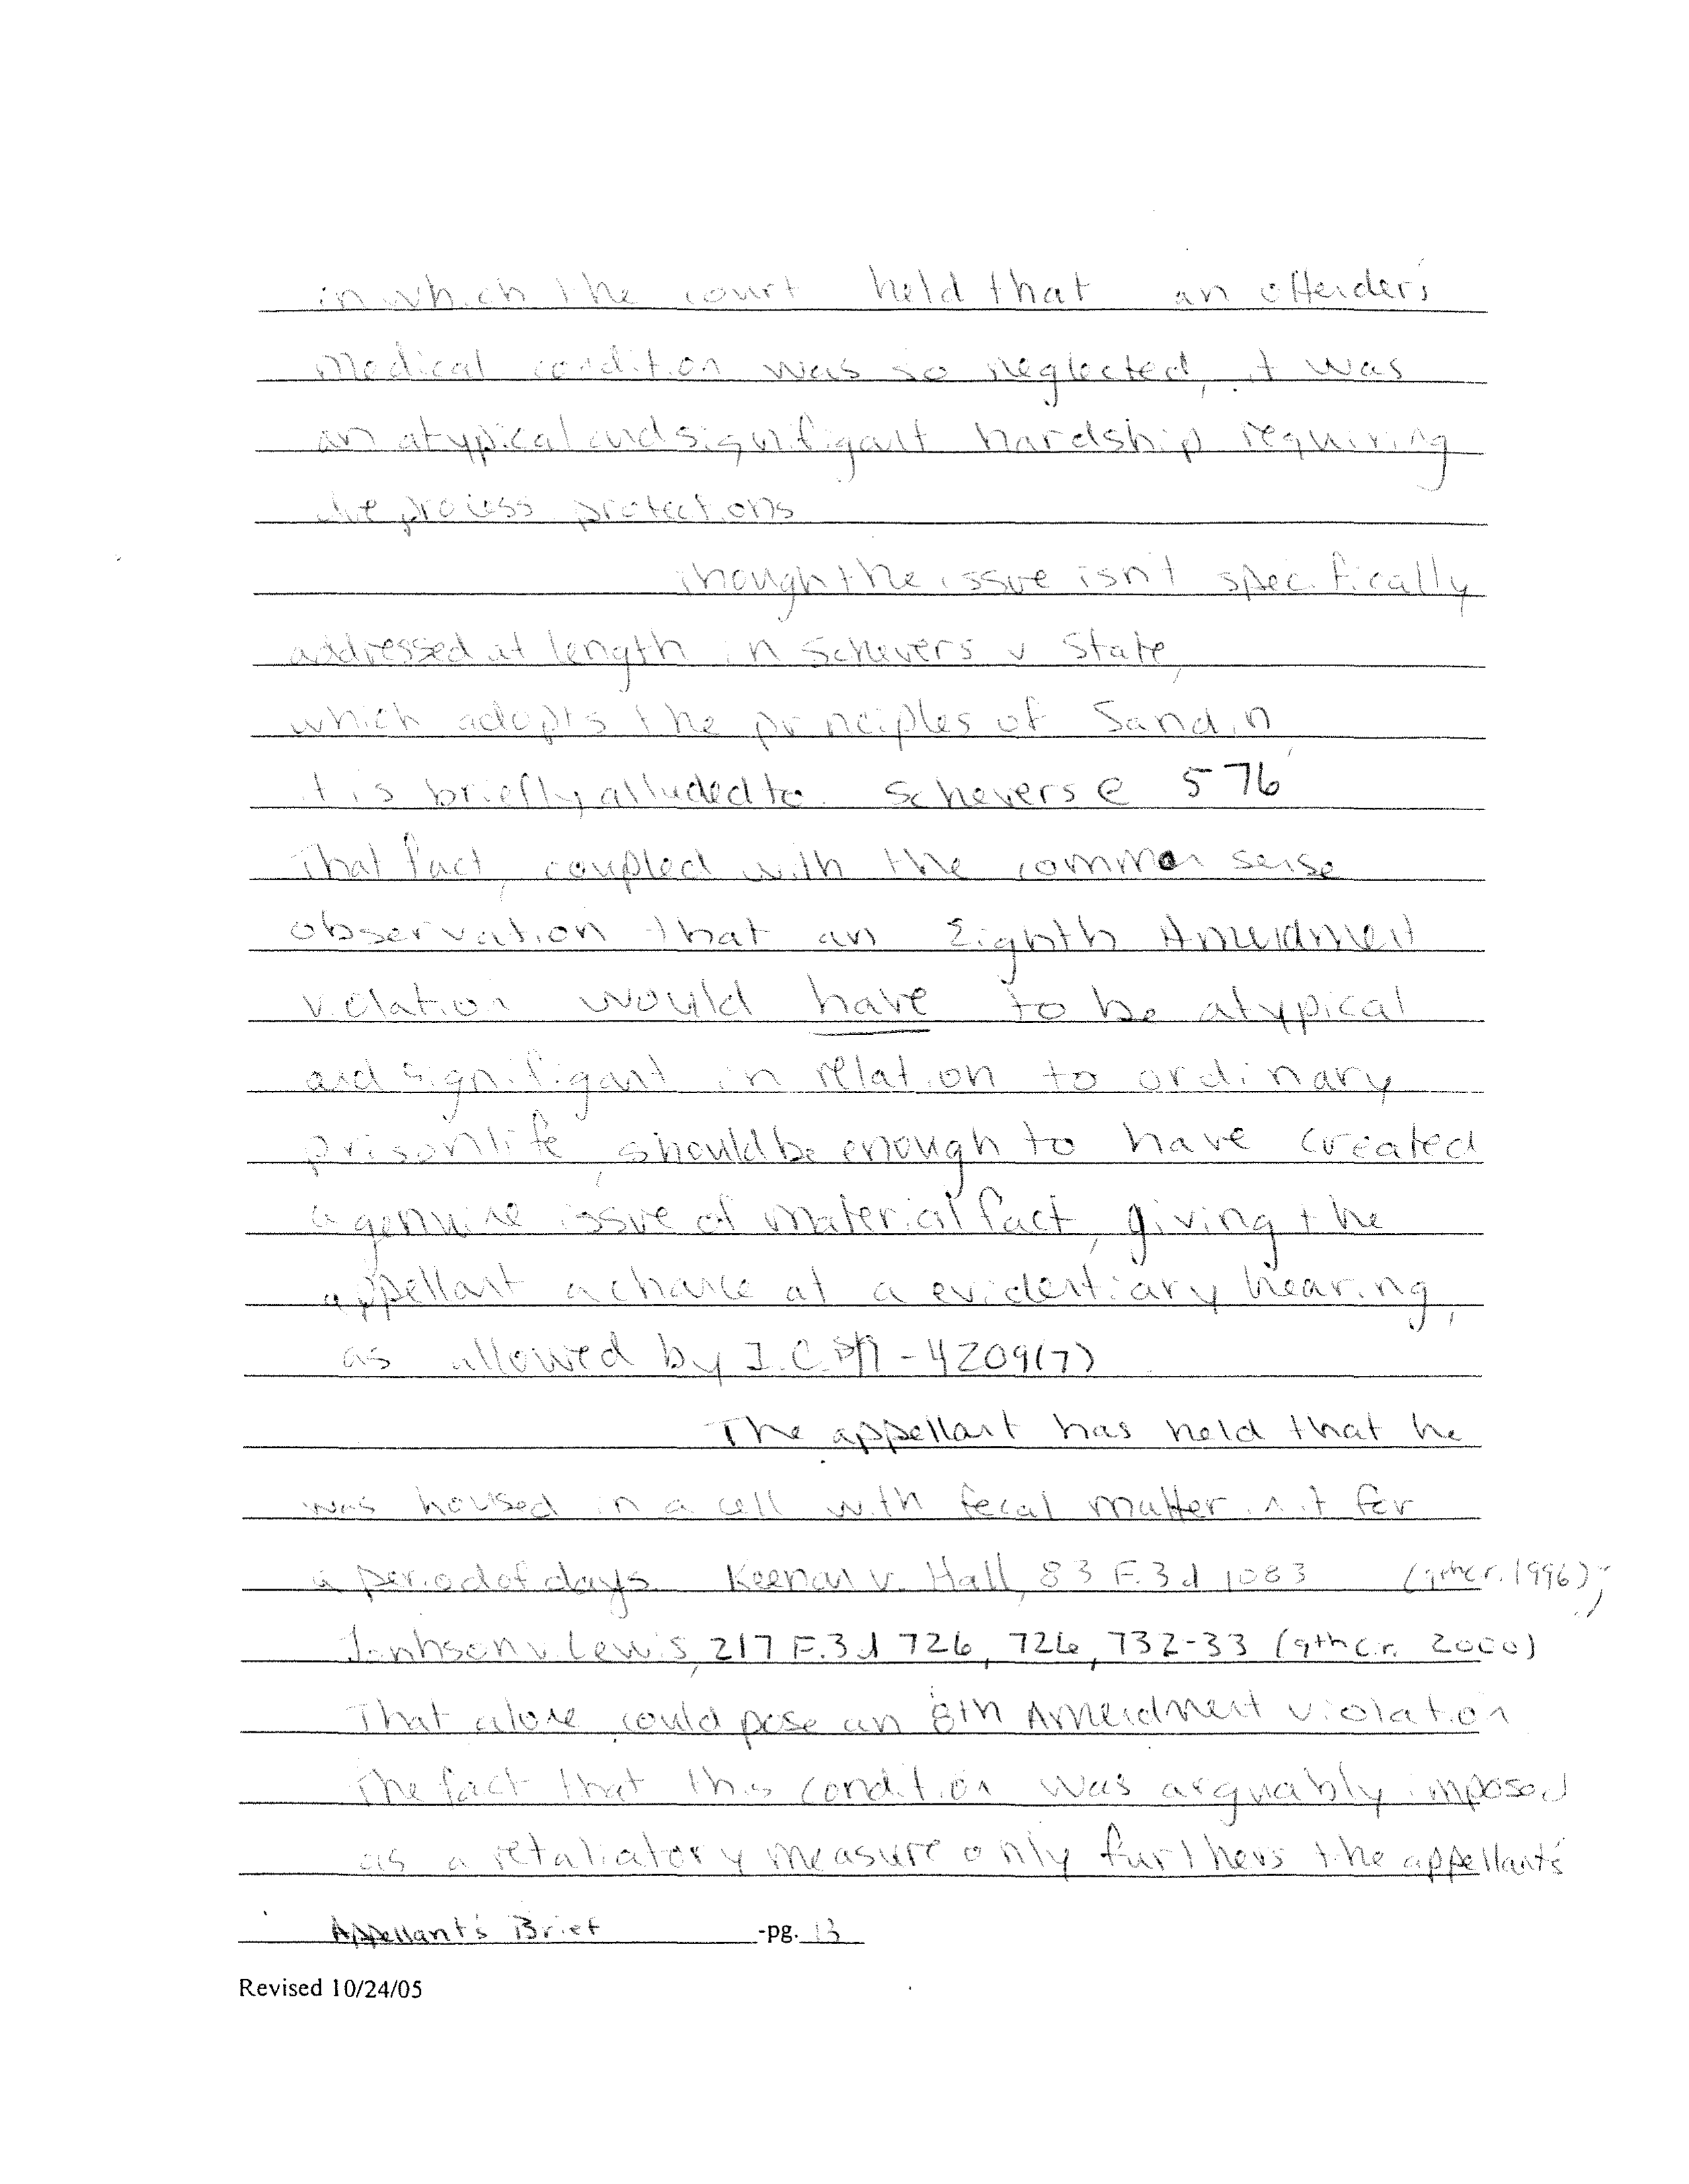 in which the court held that an offenders
Medical condition was so neglected, it was
an atypical and signifigant hardship requiring
due process protections
Though the issue isn't specifically
addressed at length in Schevers v State,
which adopts the principles of Sandin,
it is briefly alluded to. Schevers @ 576
That fact, coupled with the common sense
observation that an Eighth Amendment
violation would have to be atypical
and signifigant in relation to ordinary
prison life, should be enough to have created
a genuine issue of material fact, giving the
appellant a chance at a evidentiary hearing,
as allowed by I.C. - 4209(7)
The appellant has held that he
was housed in a cell with fecal matter in it for
a period of days. Keenan v. Hall, 83 F.3d 1083 (9th cr. 1996);
Johnson v. Lewis, 217 F.3d 726, 726, 732-33 (9th cir. 2000)
That alone could pose an 8th Amendment violation
The fact that this condition was arguably imposed
as a retaliatory measure only furthers the appellant's
Appellant's Brief -pg. 13
Revised 10/24/05